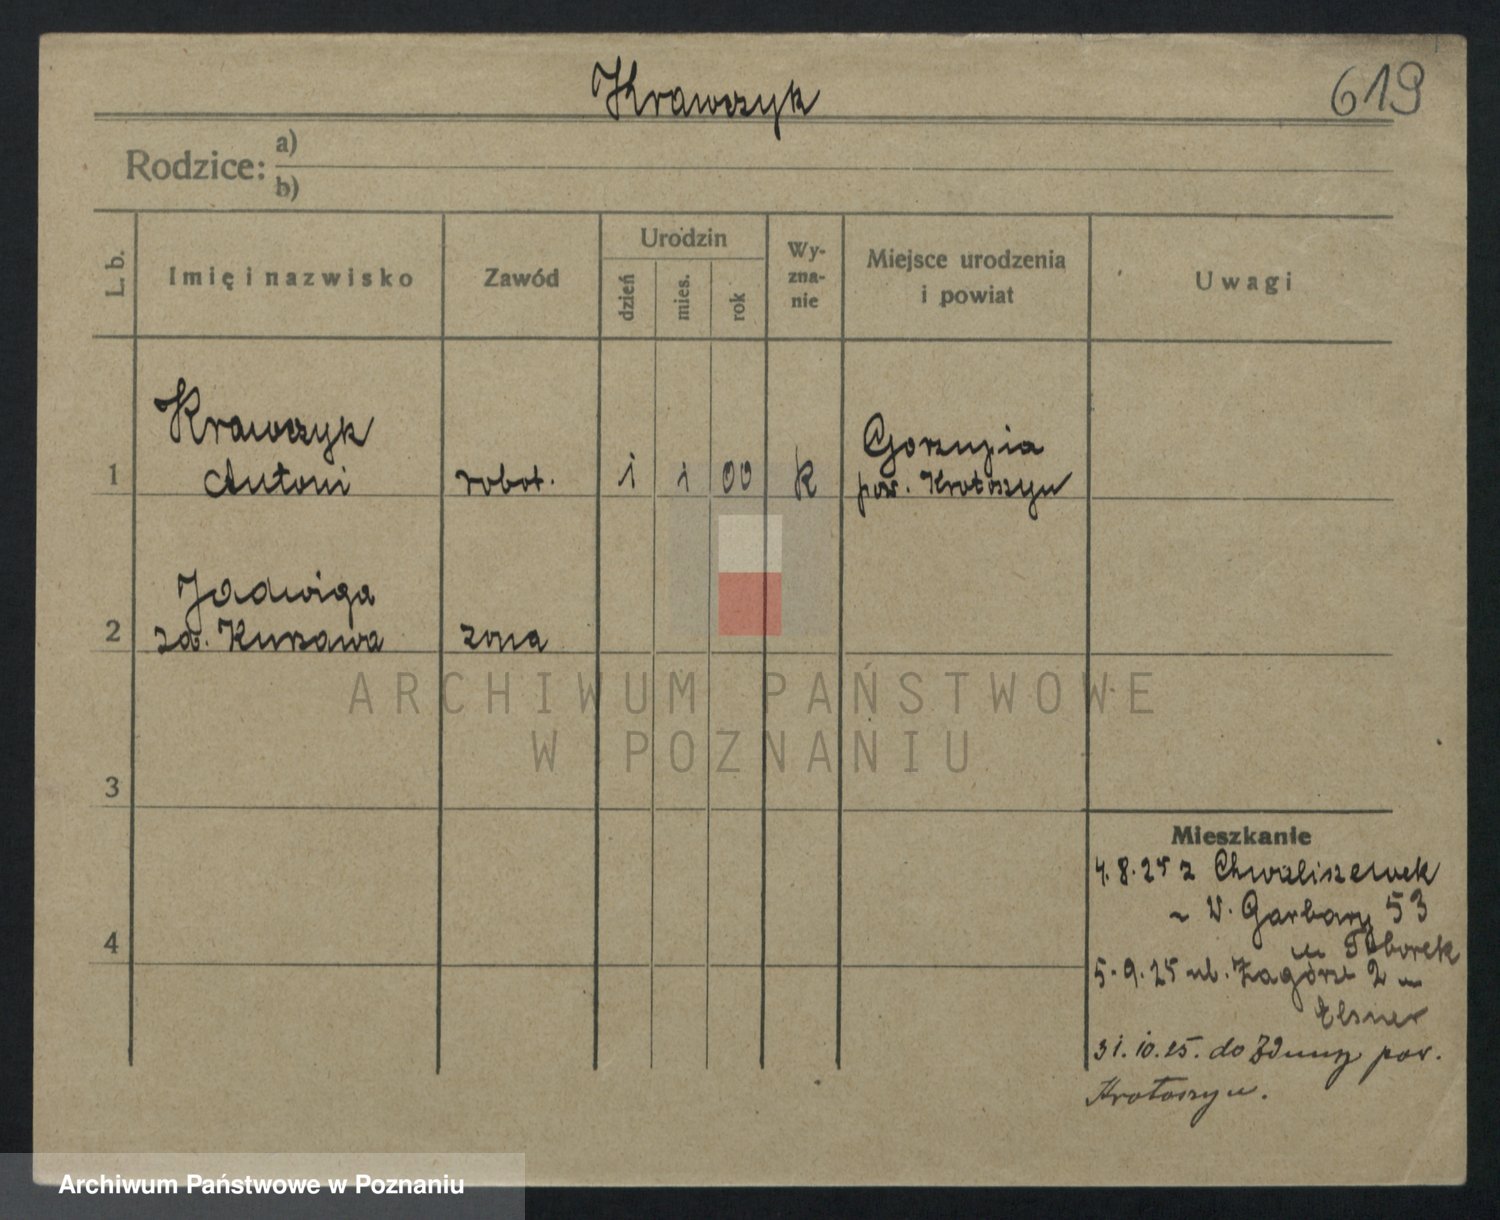 Krawczyk
619
Rodzice: a)
b)
L. b.
Imię i nazwisko
Zawód
Urodzin
dzień
mies.
rok
Wy-
zna-
nie
Miejsce urodzenia
i powiat
Uwagi
Krawczyk
1 Antoni robot. 1 1 00 k
Gorzupia
pow. Krotoszyn
Jadwiga
2 zd. Kurzawa zona
3
4
ARCHIWUM PAŃSTWOWE
W POZNANIU
Mieszkanie
4.8.25 z Chwaliszewek
W. Garbary 53
u Taborek
5.9.25 ul. Zagórze 2 u
Elsner
31.10.25. do Zduny pow.
Krotoszyn.
Archiwum Państwowe w Poznaniu